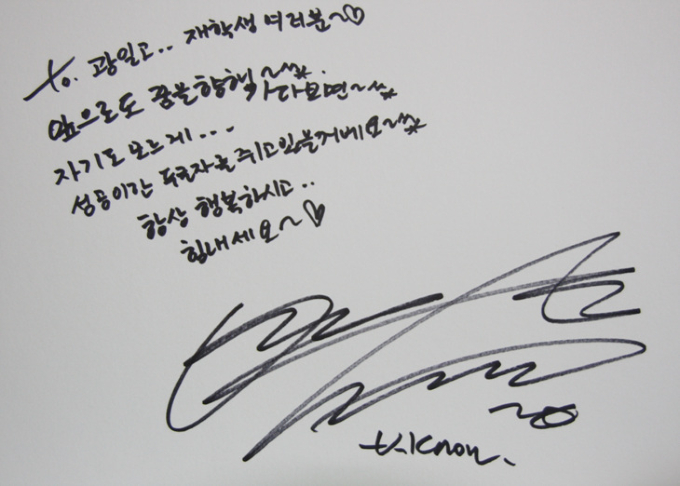 to. 광일고.. 재학생 여러분~♡
앞으로도 꿈을 향해~ 가다보면~
자기도 모르게...
성공이란 두글자를 쥐고있을거에요~
항상 행복하시고..
힘내세요~♡